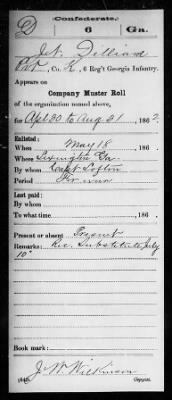 Confederate.
D 6 Ga.
J. N. Dilliard
Pvt, Co. K, 6 Reg't Georgia Infantry.
Appears on
Company Muster Roll
of the organization named above,
for Apl 30 to Aug 31, 1862.
Enlisted:
When May 18, 186
Where Lexington Ga.
By whom Capt Lofton
Period For war
Last paid:
By whom
To what time , 186 .
Present or absent Present
Remarks: Rec. Substitute July
10"
Book mark:
J. W. Wilkinson
Copyist.